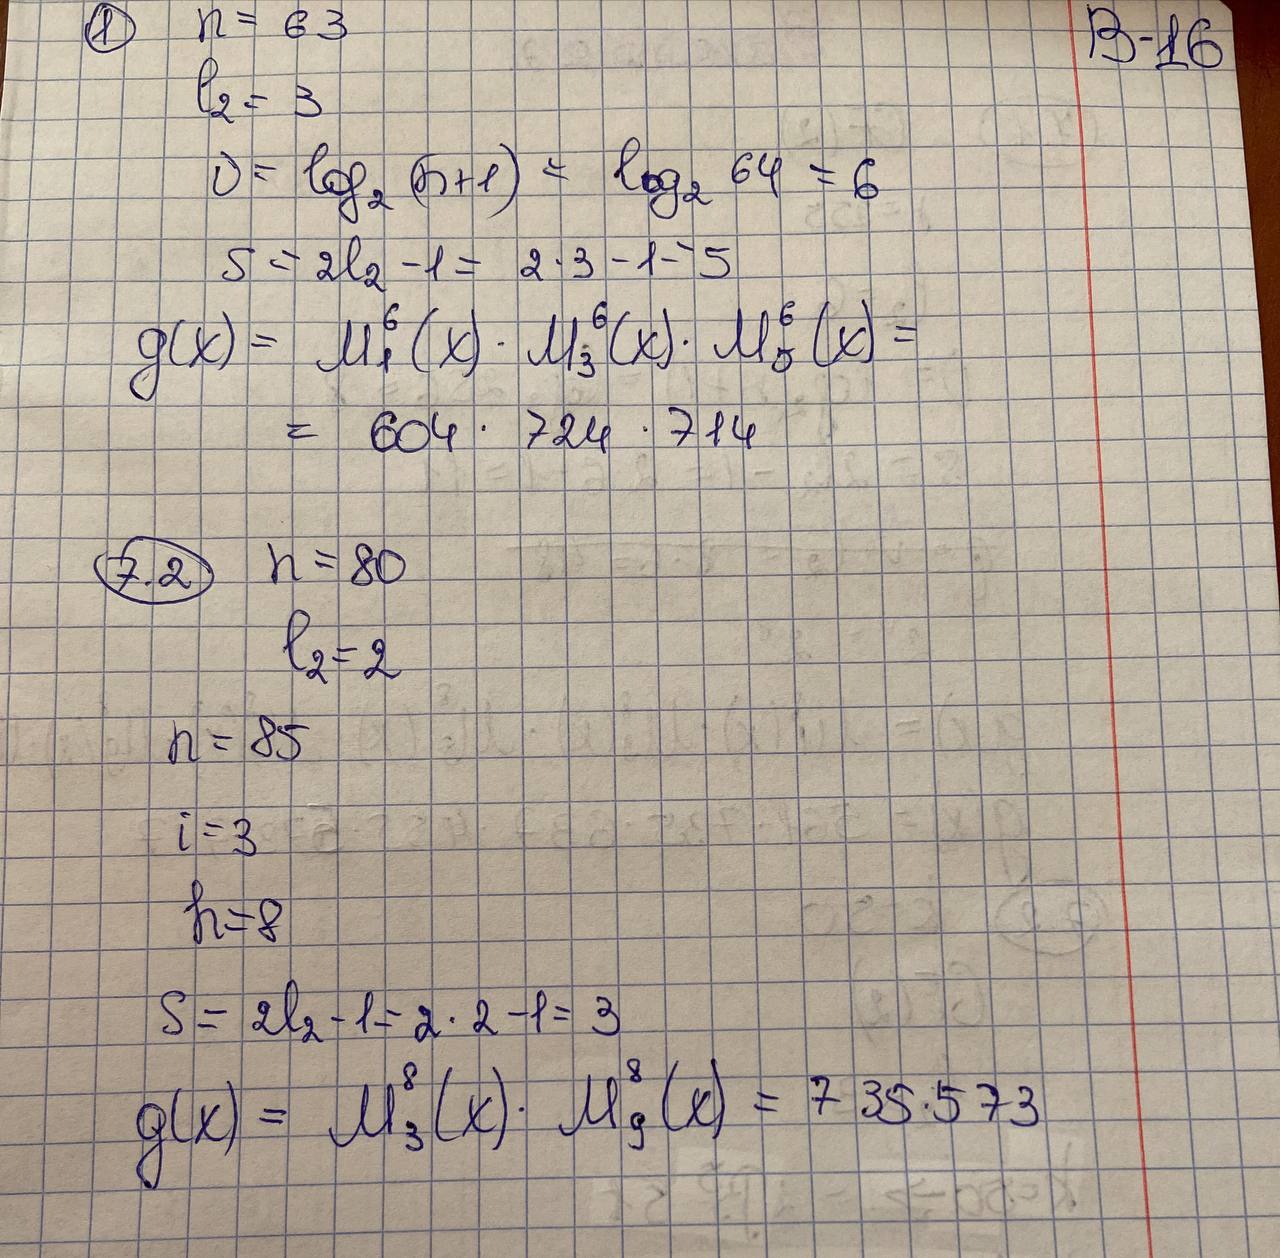 B-16
① n = 63
l₂ = 3
υ = log₂ (n+1) = log₂ 64 = 6
S = 2l₂ - 1 = 2·3 - 1 = 5
g(x) = M₁⁶(x) · M₃⁶(x) · M₅⁶(x) =
= 604 · 724 · 714
7.2 n = 80
l₂ = 2
n = 85
i = 3
h = 8
S = 2l₂ - 1 = 2·2 - 1 = 3
g(x) = M₃⁸(x) · M₉⁸(x) = 735·573